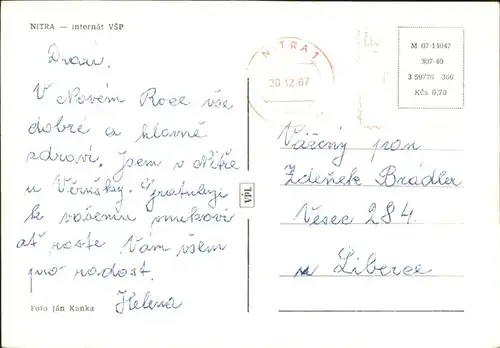 NITRA — internát VŠP
Drazí.
V Novém Roce vše
dobré a hlavně
zdraví. Jsem v Nitře
u Věrušky. Gratuluji
k vašemu vnukovi
ať roste Vám všem
pro radost.
Helena
Foto Ján Konka
VpL
NITRA 1
30.12.67
M 07-14047
307-40
3 59776 366
Kčs 0,70
Vážený pan
Zdeněk Brádler
Vesec 284
u Liberce